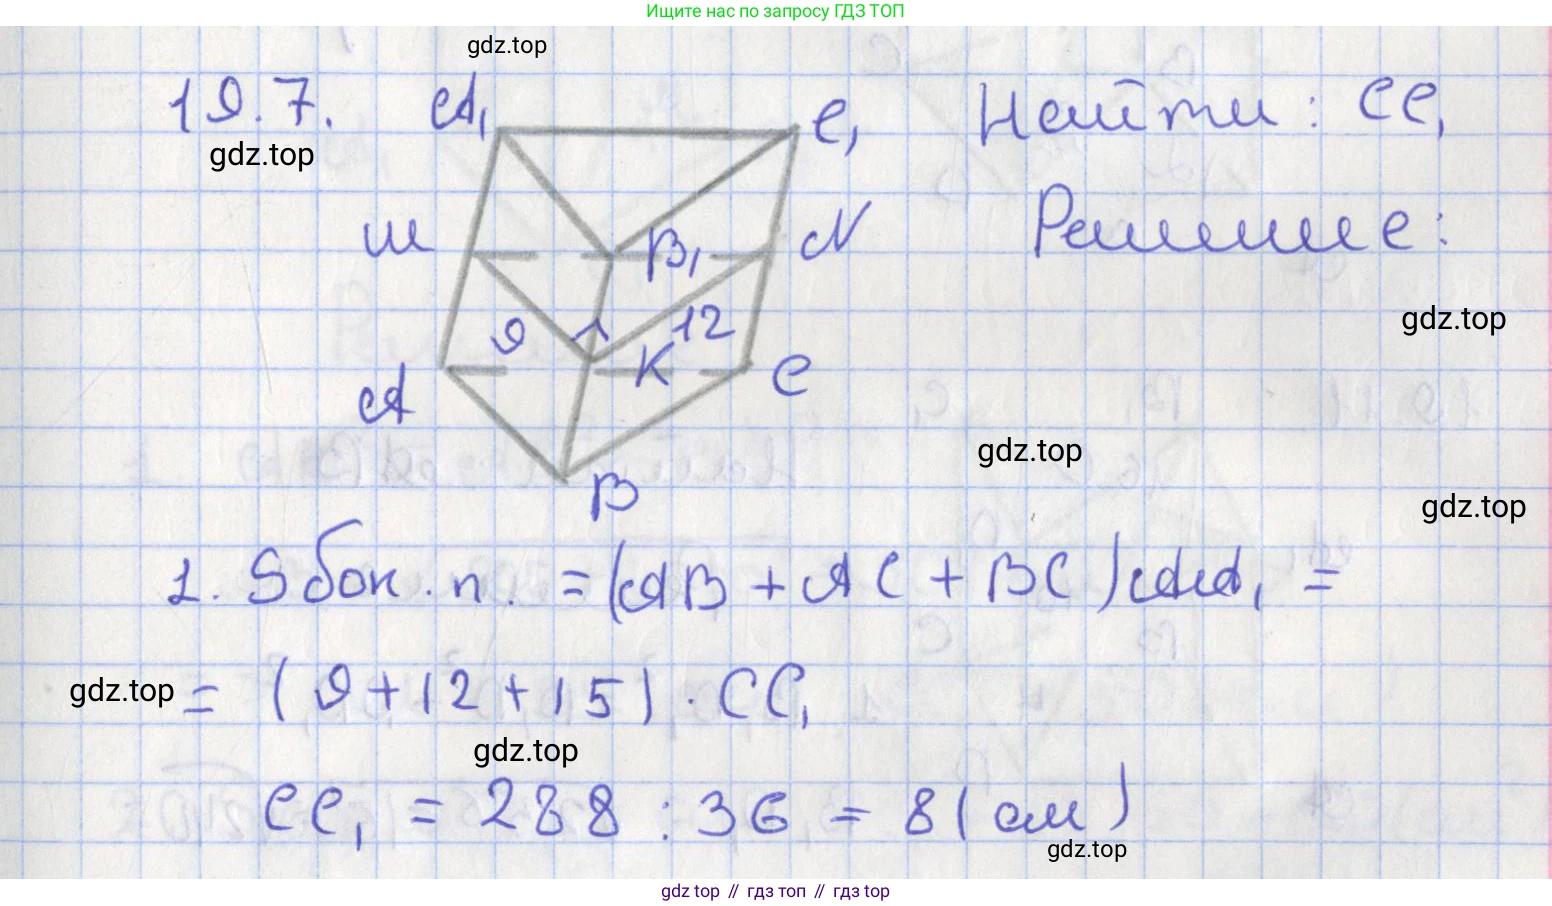 Ищите нас по запросу ГДЗ ТОП
gdz.top
19.7. A₁ C₁ Найти: CC₁
gdz.top
M B₁ N Решение:
9 K 12
gdz.top
A C
gdz.top
B
gdz.top
1. Sбок. п. = (AB + AC + BC) AA₁ =
gdz.top
= (9 + 12 + 15) · CC₁
gdz.top
CC₁ = 288 : 36 = 8 (см)
gdz.top
gdz top // гдз топ // gdz top